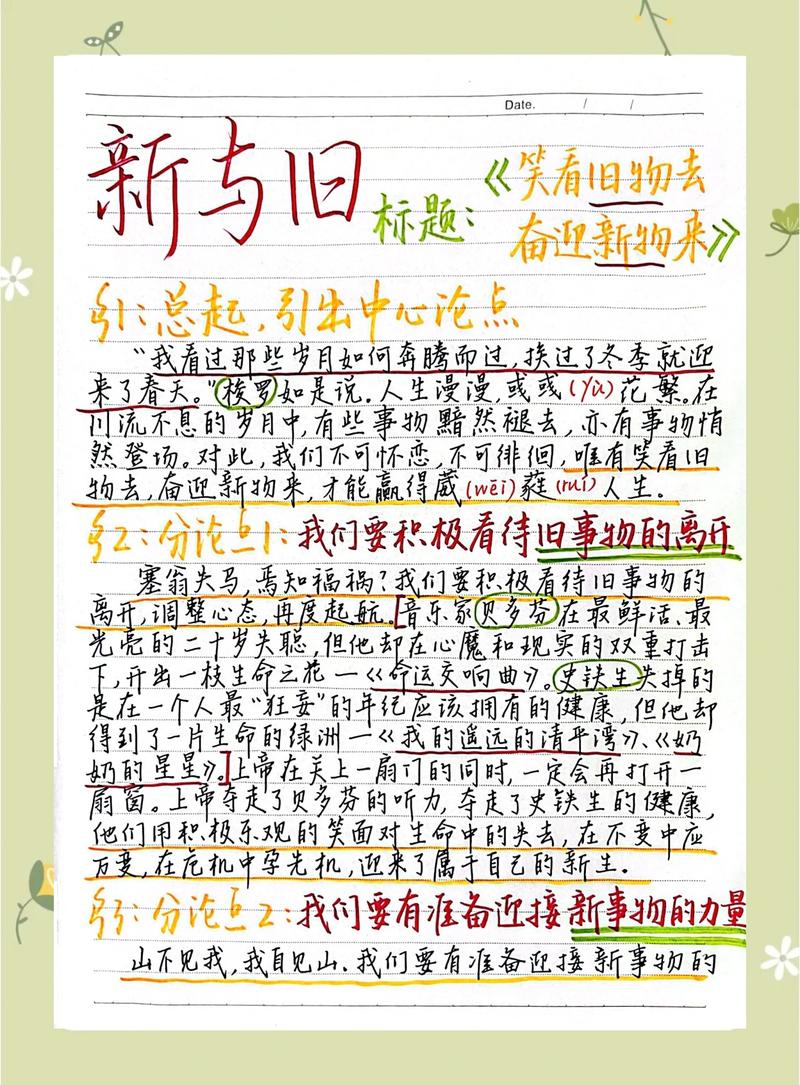 Date. / /
新与旧
标题:
《笑看旧物去
奋迎新物来》
§1:总起,引出中心论点
“我看过那些岁月如何奔腾而过,挨过了冬季就迎
来了春天。”梭罗如是说。人生漫漫,彧彧(yù)花繁。在
川流不息的岁月中,有些事物黯然褪去,亦有事物悄
然登场。对此,我们不可怀恋,不可徘徊,唯有笑看旧
物去,奋迎新物来,才能赢得葳(wēi)蕤(ruí)人生。
§2:分论点1:我们要积极看待旧事物的离开
塞翁失马,焉知福祸?我们要积极看待旧事物的
离开,调整心态,再度起航。[音乐家贝多芬在最鲜活、最
光亮的二十岁失聪,但他却在心魔和现实的双重打击
下,开出一枝生命之花—《命运交响曲》。史铁生失掉的
是在一个人最“狂妄”的年纪应该拥有的健康,但他却
得到了一片生命的绿洲—《我的遥远的清平湾》、《奶
奶的星星》。]上帝在关上一扇门的同时,一定会再打开一
扇窗。上帝夺走了贝多芬的听力,夺走了史铁生的健康,
他们用积极乐观的笑面对生命中的失去,在不变中应
万变,在危机中孕先机,迎来了属于自己的新生.
§3:分论点2:我们要有准备迎接新事物的力量
山不见我,我自见山.我们要有准备迎接新事物的